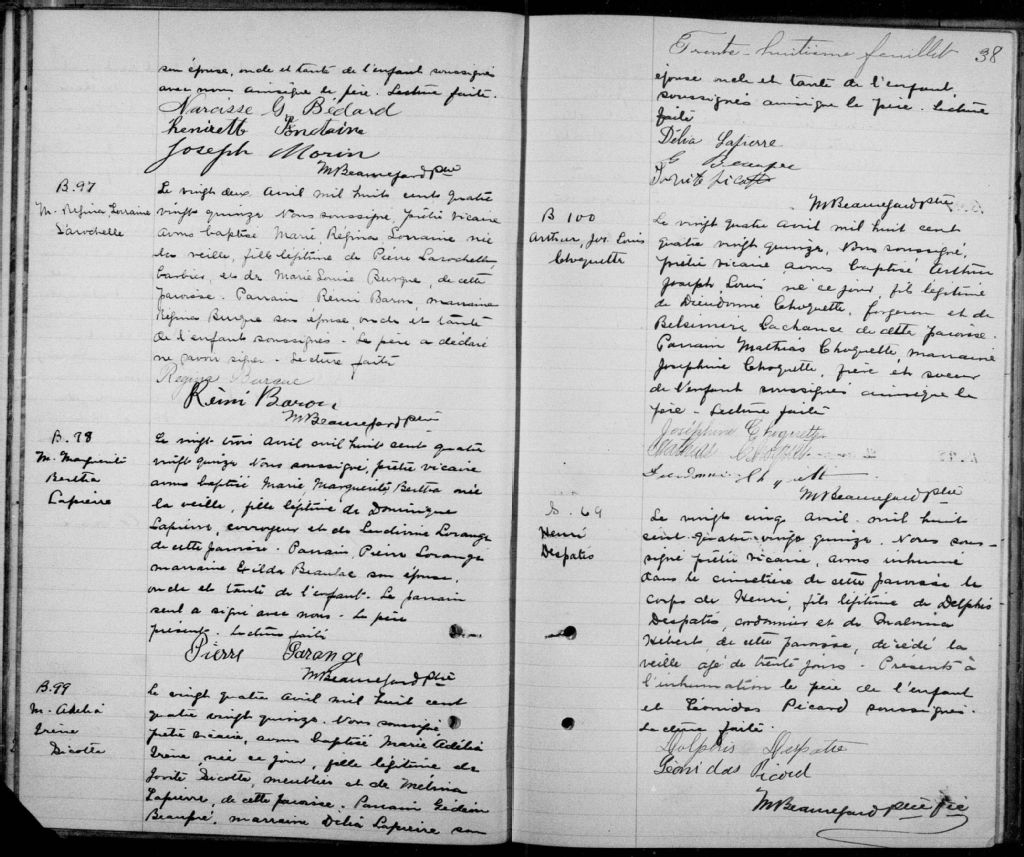 son épouse, oncle et tante de l'enfant soussignés
avec nous ainsi que le père. Lecture faite.
Narcisse G. Bédard
henriett Fontaine
Joseph Morin
MBeauregard ptre
B.97
M. Régina Lorraine
Larochelle
Le vingt deux Avril mil huit cent quatre
vingt quinze Nous soussigné, prêtre vicaire
avons baptisé Marie, Régina Lorraine née
la veille, fille légitime de Pierre Larochelle
barbier, et de Marie Louise Burque, de cette
paroisse. Parrain Rémi Baron, marraine
Régina Burque son épouse, oncle et tante
de l'enfant soussignés. Le père a déclaré
ne savoir signer. Lecture faite
Regina Burque
Rémi Baron
MBeauregard ptre
B.98
M. Marguerite
Bertha
Lapierre
Le vingt trois Avril mil huit cent quatre
vingt quinze Nous soussigné, prêtre vicaire
avons baptisé Marie, Marguerite, Bertha née
la veille, fille légitime de Dominique
Lapierre, corroyeur et de Ludivine Lorange
de cette paroisse. Parrain, Pierre Lorange
marraine Exilda Beaulac son épouse,
oncle et tante de l'enfant. Le parrain
seul a signé avec nous. Le père
présent. Lecture faite
Pierre Larange
MBeauregard ptre
B.99
M. Adélia
Irène
Dicotte
Le vingt quatre Avril mil huit cent
quatre vingt quinze. Nous soussigné
prêtre vicaire, avons baptisé Marie Adélia
Irène, née ce jour, fille légitime de
Jovite Dicotte, meublier et de Mélina
Lapierre, de cette paroisse. Parrain Gédéon
Beaupré, marraine Délia Lapierre son
Trente-huitième feuillet 38
épouse oncle et tante de l'enfant,
soussignés ainsi que le père. Lecture
faite
Délia Lapierre
G Beaupre
MBeauregard ptre
B 100
Arthur, Jos. Louis
Choquette
Le vingt quatre avril mil huit cent
quatre vingt quinze, Nous soussigné,
prêtre vicaire, avons baptisé Arthur
Joseph Louis né ce jour, fils légitime
de Dieudonné Choquette, forgeron et de
Belzémire Lachance de cette paroisse.
Parrain Mathias Choquette, marraine
Joséphine Choquette, frère et soeur
de l'enfant soussignés ainsi que le
père. Lecture faite
Joséphine Choquette
Mathias Choquette
MBeauregard ptre
S. 69
Henri
Despatis
Le vingt cinq Avril mil huit
cent quatre-vingt quinze. Nous sous-
signé prêtre vicaire, avons inhumé
dans le cimetière de cette paroisse le
corps de Henri, fils légitime de Delphis
Despatis, cordonnier et de Malvina
Hébert, de cette paroisse, décédé la
veille agé de trente jours. Présents à
l'inhumation le père de l'enfant
et Léonidas Picard soussignés.
Lecture faite.
Dolphis Despatie
Léonidas Picard
MBeauregard ptre